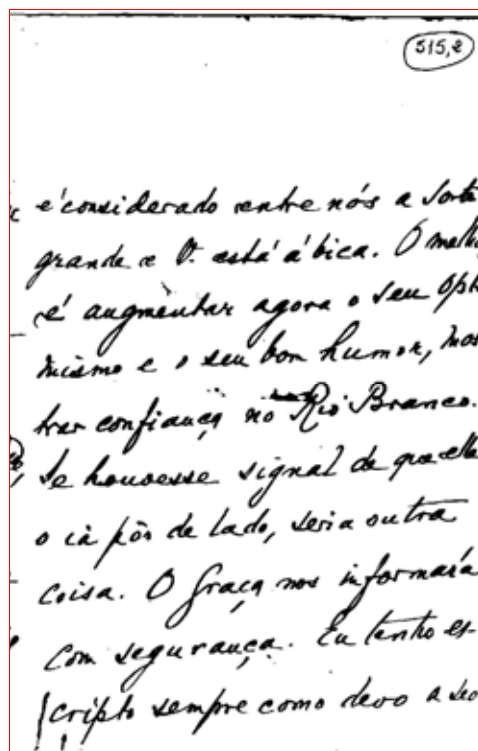 515,2
é considerado entre nós a sorte
grande e V. está á bica. O melho
é augmentar agora o seu opti
mismo e o seu bom humor, mos
trar confiança no Rio Branco.
Se houvesse signal de que elle
o ia pôr de lado, seria outra
coisa. O Graça nos informaria
com segurança. Eu tenho es-
cripto sempre como devo a seo